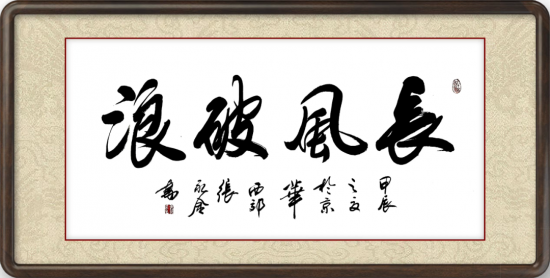 長風破浪
甲辰之夏於京華西郊張永書